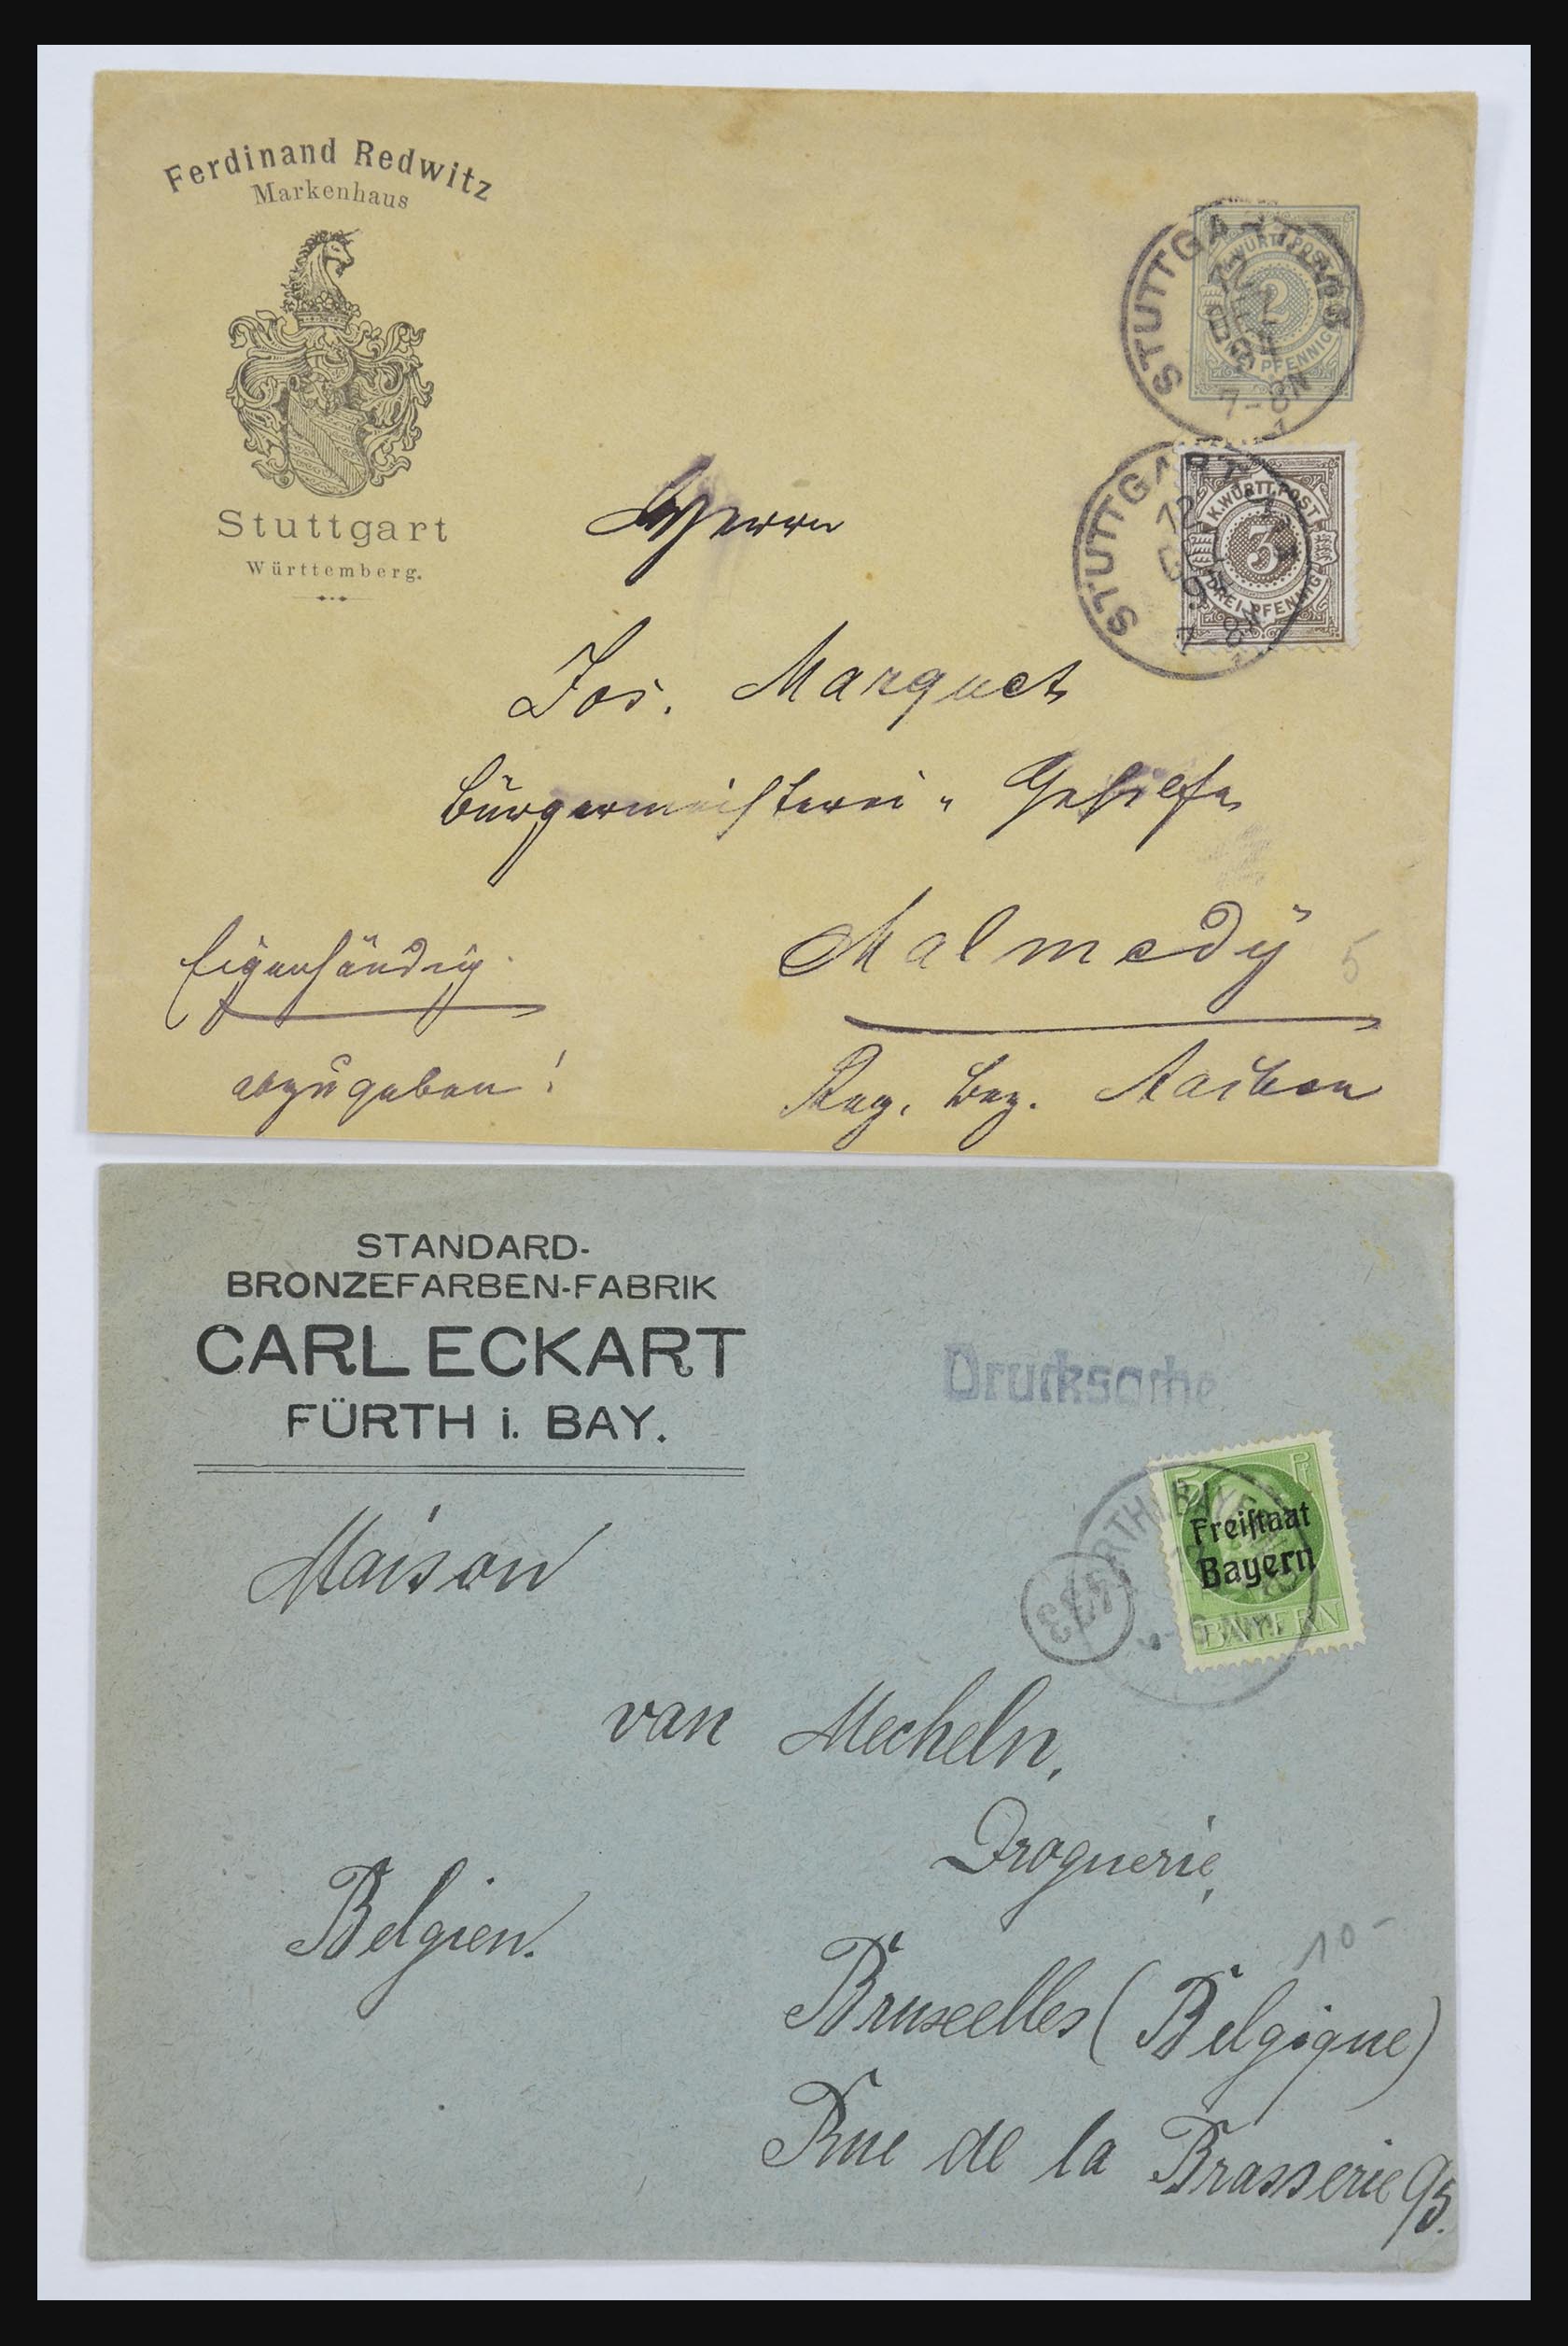 Ferdinand Redwitz
Markenhaus
Stuttgart
Württemberg.
STUTTGART
K. WÜRTT. POST
2
PFENNIG
7-8N
1
STUTTGART
12
K. WÜRTT. POST
3
DREI PFENNIG
7-8N
1
Herrn
Jos. Marquet
Bürgermeisterei-Gehilfe
Malmedÿ
5
Eigenhändig
abzugeben!
Reg. Bez. Aachen
STANDARD-
BRONZEFARBEN-FABRIK
CARL ECKART
FÜRTH i. BAY.
Drucksache
5 Pf
Freistaat
Bayern
BAYERN
Maison
van Mecheln,
Droguerie,
Belgien.
10-
Bruxelles (Belgique)
Rue de la Brasserie 95.